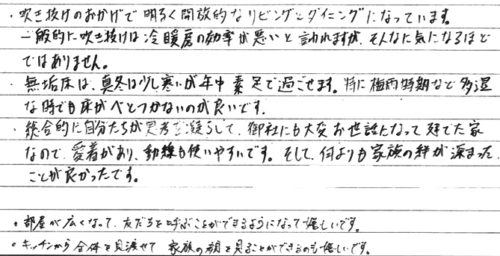 ・吹き抜けのおかげで明るく開放的なリビングとダイニングになっています。
一般的に吹き抜けは冷暖房の効率が悪いと言われますが、そんなに気になるほど
ではありません。
・無垢床は、真冬は少し寒いが年中素足で過ごせます。特に梅雨時期など多湿
な時でも床がべとつかないのが良いです。
・総合的に自分たちが思考を凝らして、御社にも大変お世話になって建てた家
なので、愛着があり、動線も使いやすいです。そして、何よりも家族の絆が深まった
ことが良かったです。
・部屋が広くなって、友だちを呼ぶことができるようになって嬉しいです。
・キッチンから全体を見渡せて 家族の顔を見ることができるのも嬉しいです。